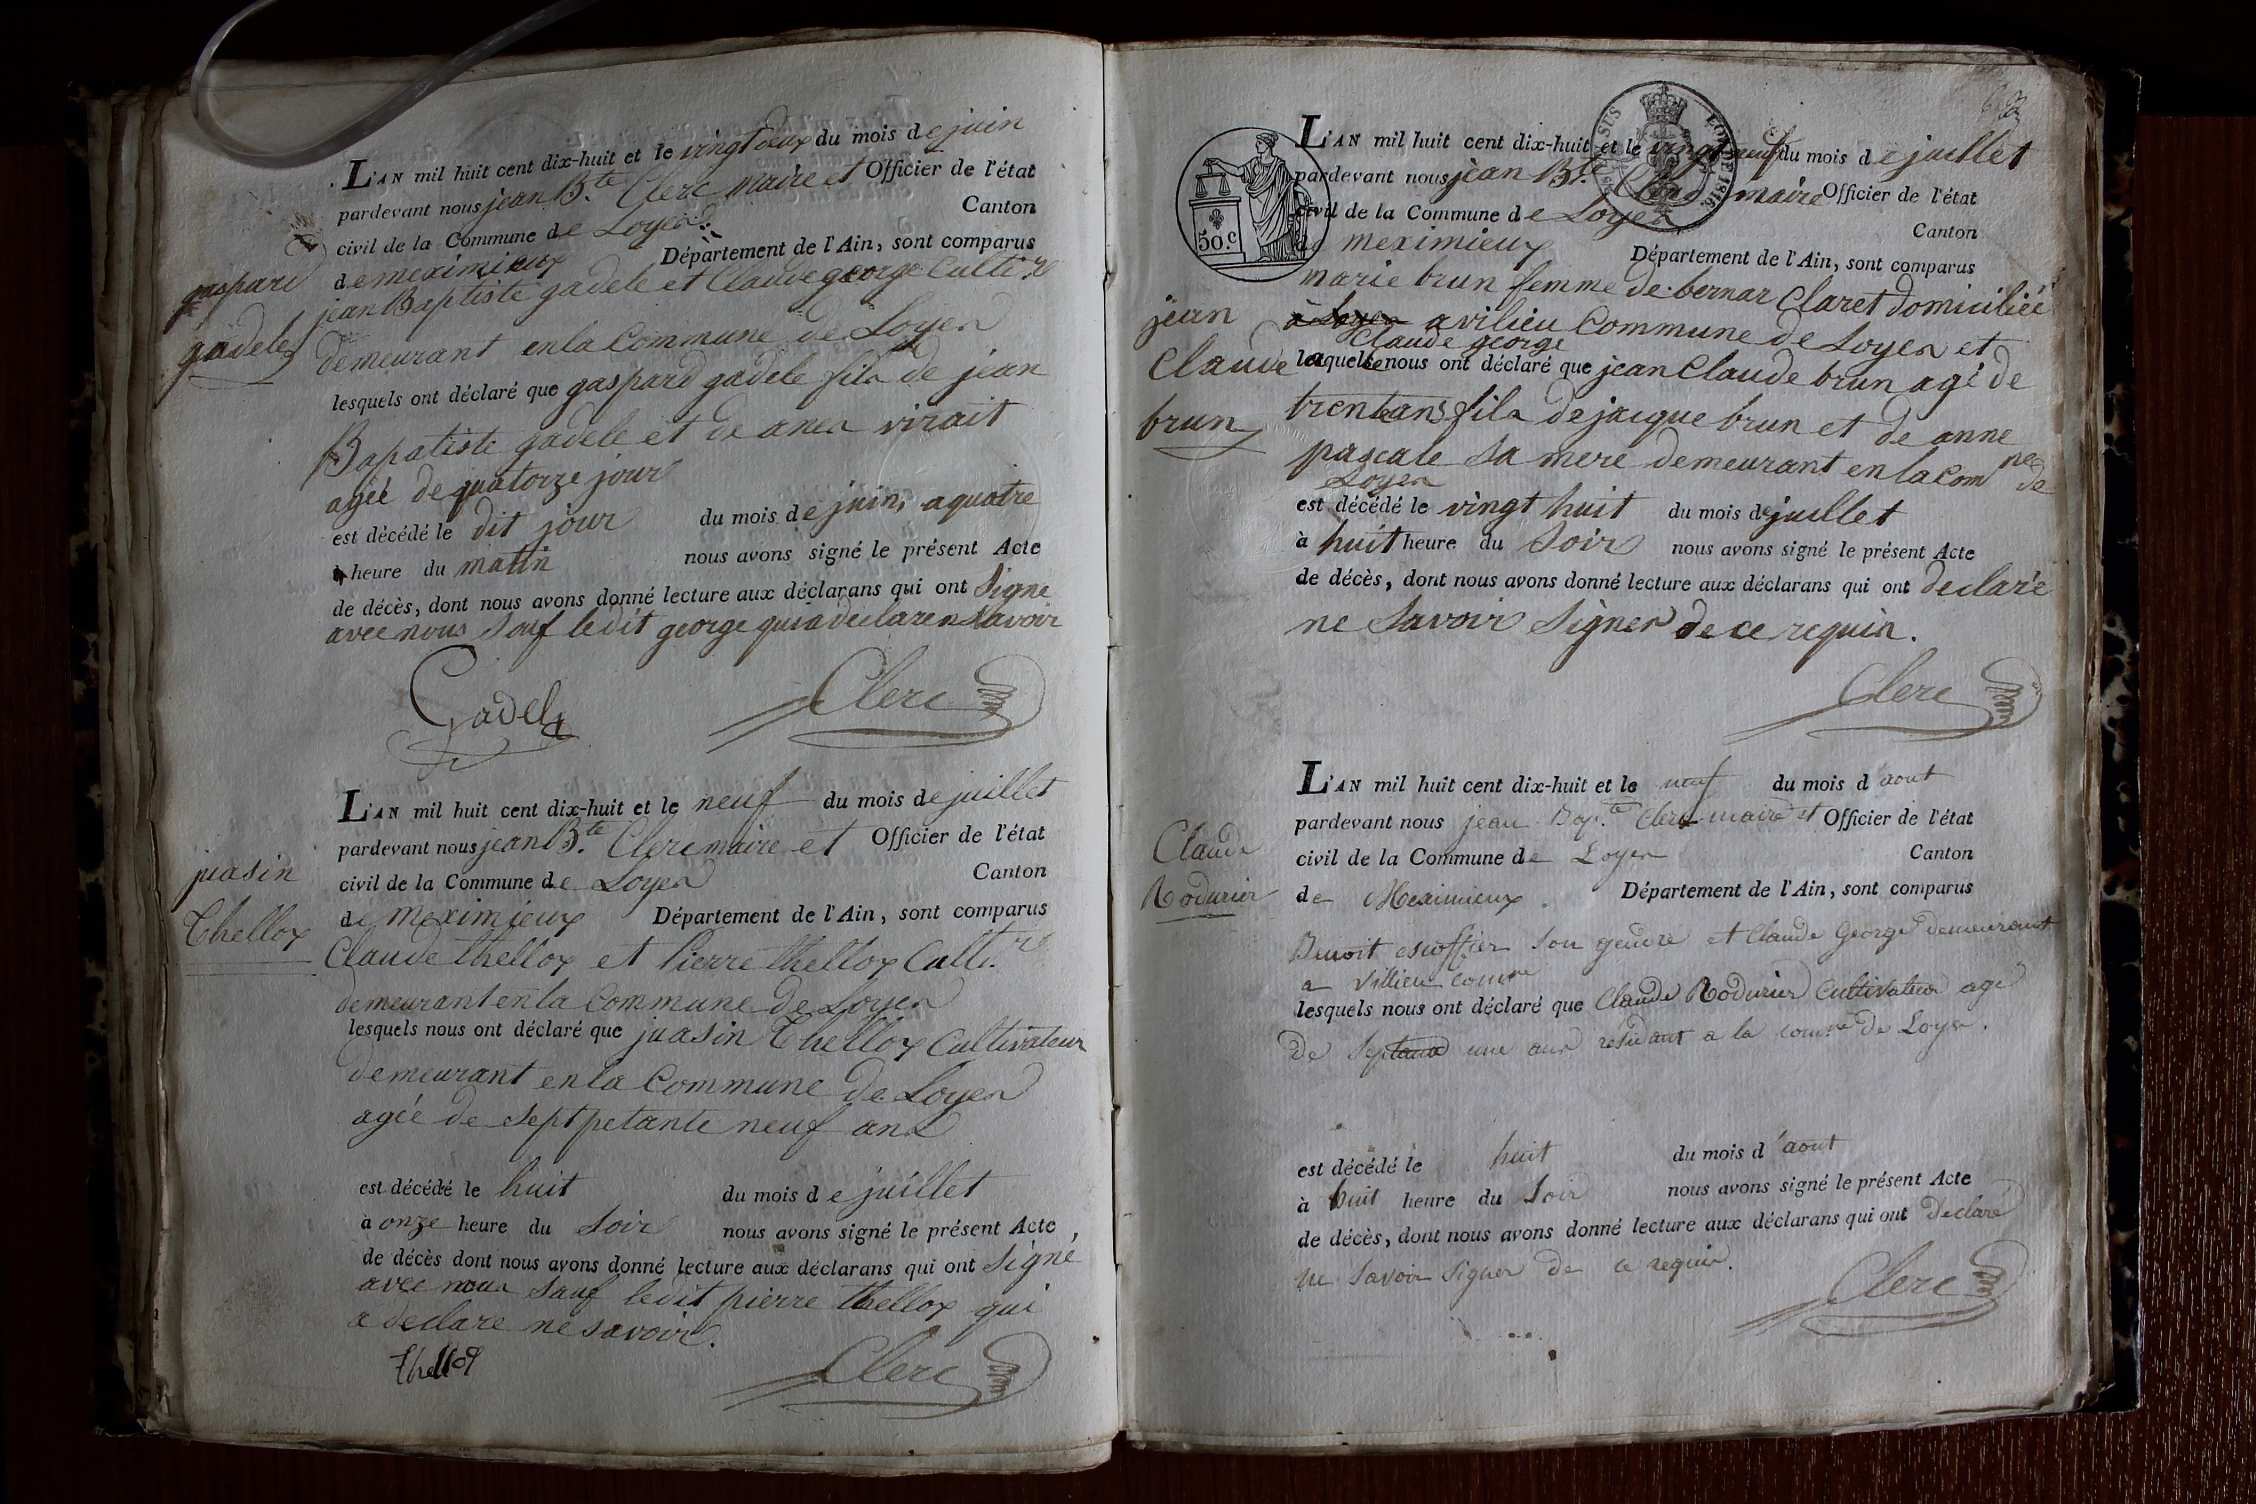 L'AN mil huit cent dix-huit et le vingt deux du mois de juin
pardevant nous jean B.te Clerc maire et Officier de l'état
civil de la Commune de Loyes Canton
de meximieux Département de l'Ain, sont comparus
gaspard
gadele
jean Baptiste gadele et Claude george Cultivre
demeurant en la Commune de Loyes
lesquels ont déclaré que gaspard gadele fils de jean
Bapatiste gadele et de anes virait
agée de quatorze jour
est décédé le dit jour du mois de juin, a quatre
à heure du matin nous avons signé le présent Acte
de décès, dont nous avons donné lecture aux déclarans qui ont signe
avec nous Souf ledit george qui a declare n savoir
Gadel
Clerc
L'AN mil huit cent dix-huit et le neuf du mois de juillet
pardevant nous jean B.te Clerc maire et Officier de l'état
civil de la Commune de Loyes Canton
de meximieux Département de l'Ain, sont comparus
juasin
Thellox
Claude thellox et Pierre thellox Cult.rs
demeurant en la Commune de Loyes
lesquels nous ont déclaré que juasin Thellox Cultivateur
demeurant en la Commune de Loyes
agée de septpetante neuf ans
est décédé le huit du mois de juillet
à onze heure du Soir nous avons signé le présent Acte
de décès dont nous avons donné lecture aux déclarans qui ont signé
avec nous Sauf ledit pierre thellox qui
a declare ne savoir.
Thellox
Clerc
50 c
L'AN mil huit cent dix-huit et le vingt neuf du mois de juillet
pardevant nous jean B.te Clerc maire Officier de l'état
civil de la Commune de Loyes Canton
de meximieux Département de l'Ain, sont comparus
marie brun femme de bernar Claret domiciliéé
jean
Claude
brun
à Loyes a vilieu Commune de Loyes et
Claude george
laquelle nous ont déclaré que jean Claude brun agé de
trente ans fils de jacque brun et de anne
pascale sa mere demeurant en la com ne de
Loyes
est décédé le vingt huit du mois de juillet
à huit heure du Soir nous avons signé le présent Acte
de décès, dont nous avons donné lecture aux déclarans qui ont declaré
ne Savoir Signer de ce requin.
Clerc
L'AN mil huit cent dix-huit et le neuf du mois d'aout
pardevant nous jean Bap.te Clerc maire et Officier de l'état
civil de la Commune de Loyes Canton
de Meximieux. Département de l'Ain, sont comparus
Claude
Rodurier
Benoit escoffier son gendre et Claude George demeurant
a Villieu comne
lesquels nous ont déclaré que Claude Rodurier Cultivateur agé
de Septante une ans résidant a la comne de Loyes.
est décédé le huit du mois d'aout
à huit heure du Soir nous avons signé le présent Acte
de décès, dont nous avons donné lecture aux déclarans qui ont declaré
ne Savoir Signer de ce requis.
Clerc